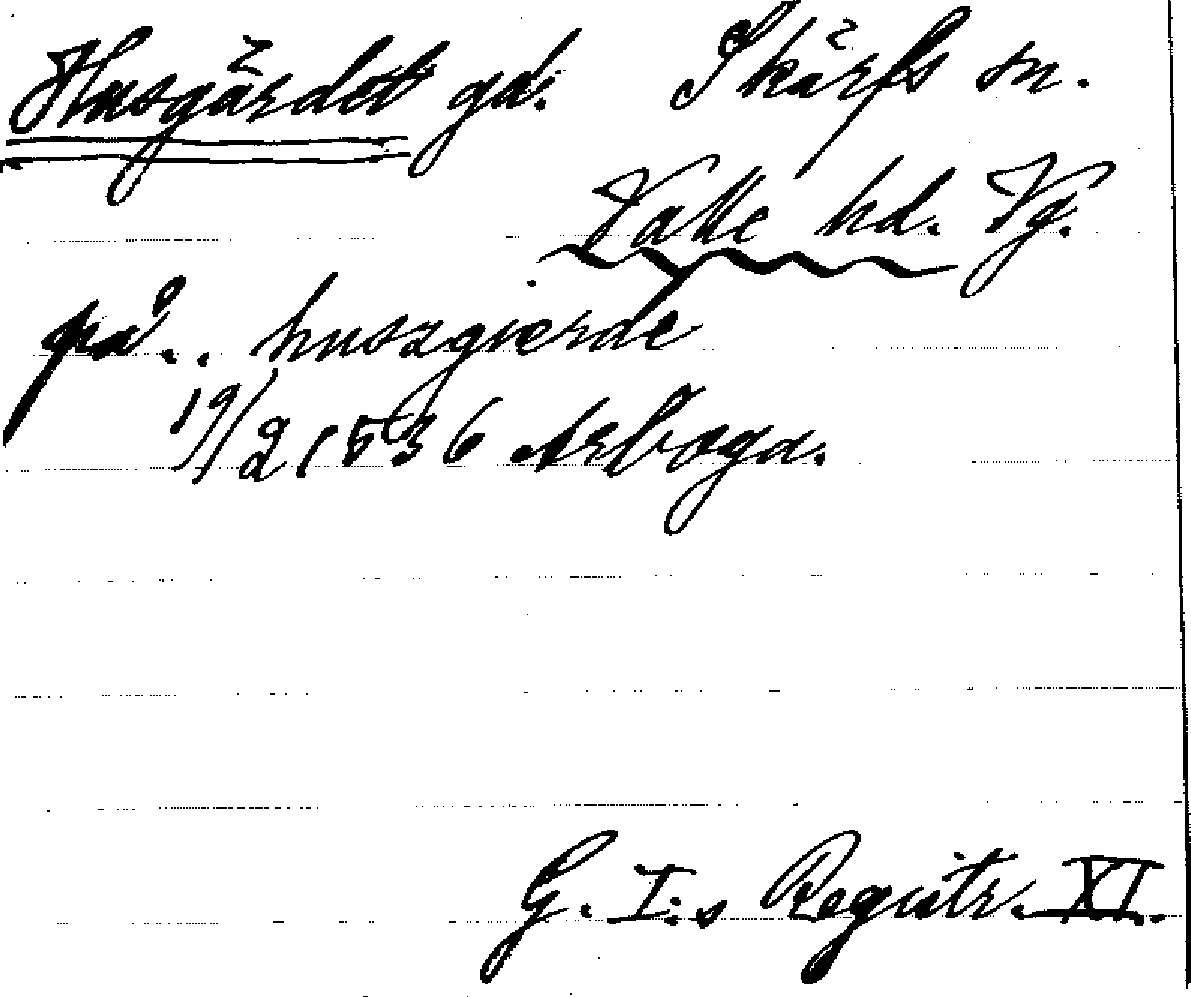 Husgärdet gd. Skärfs sn.
Valle hd. Vg.
på.. huszgierde
19/2 1536 Arboga.
G. I:s Registr. XI.